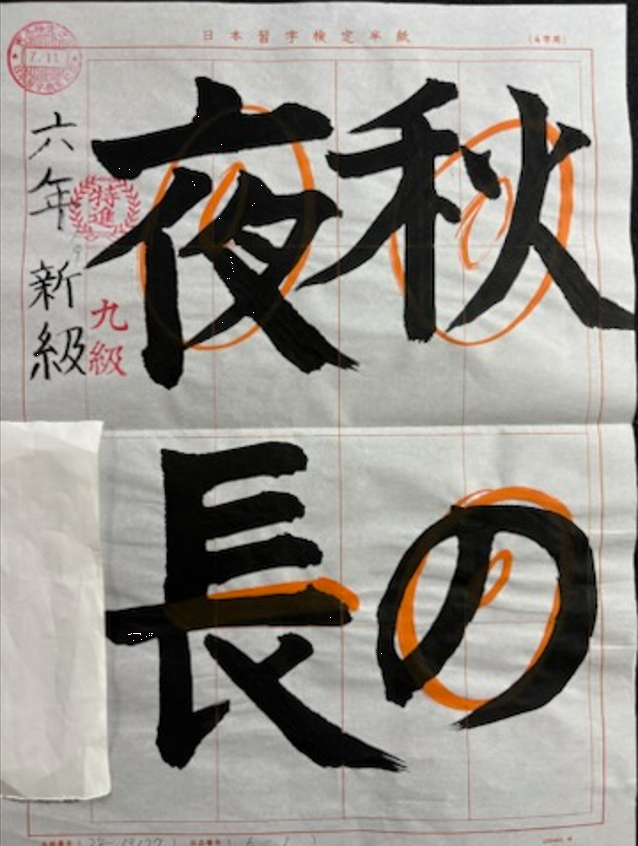 日本習字検定半紙
(4字用)
秋の
夜長
六年 新級
特進
九級
7.11